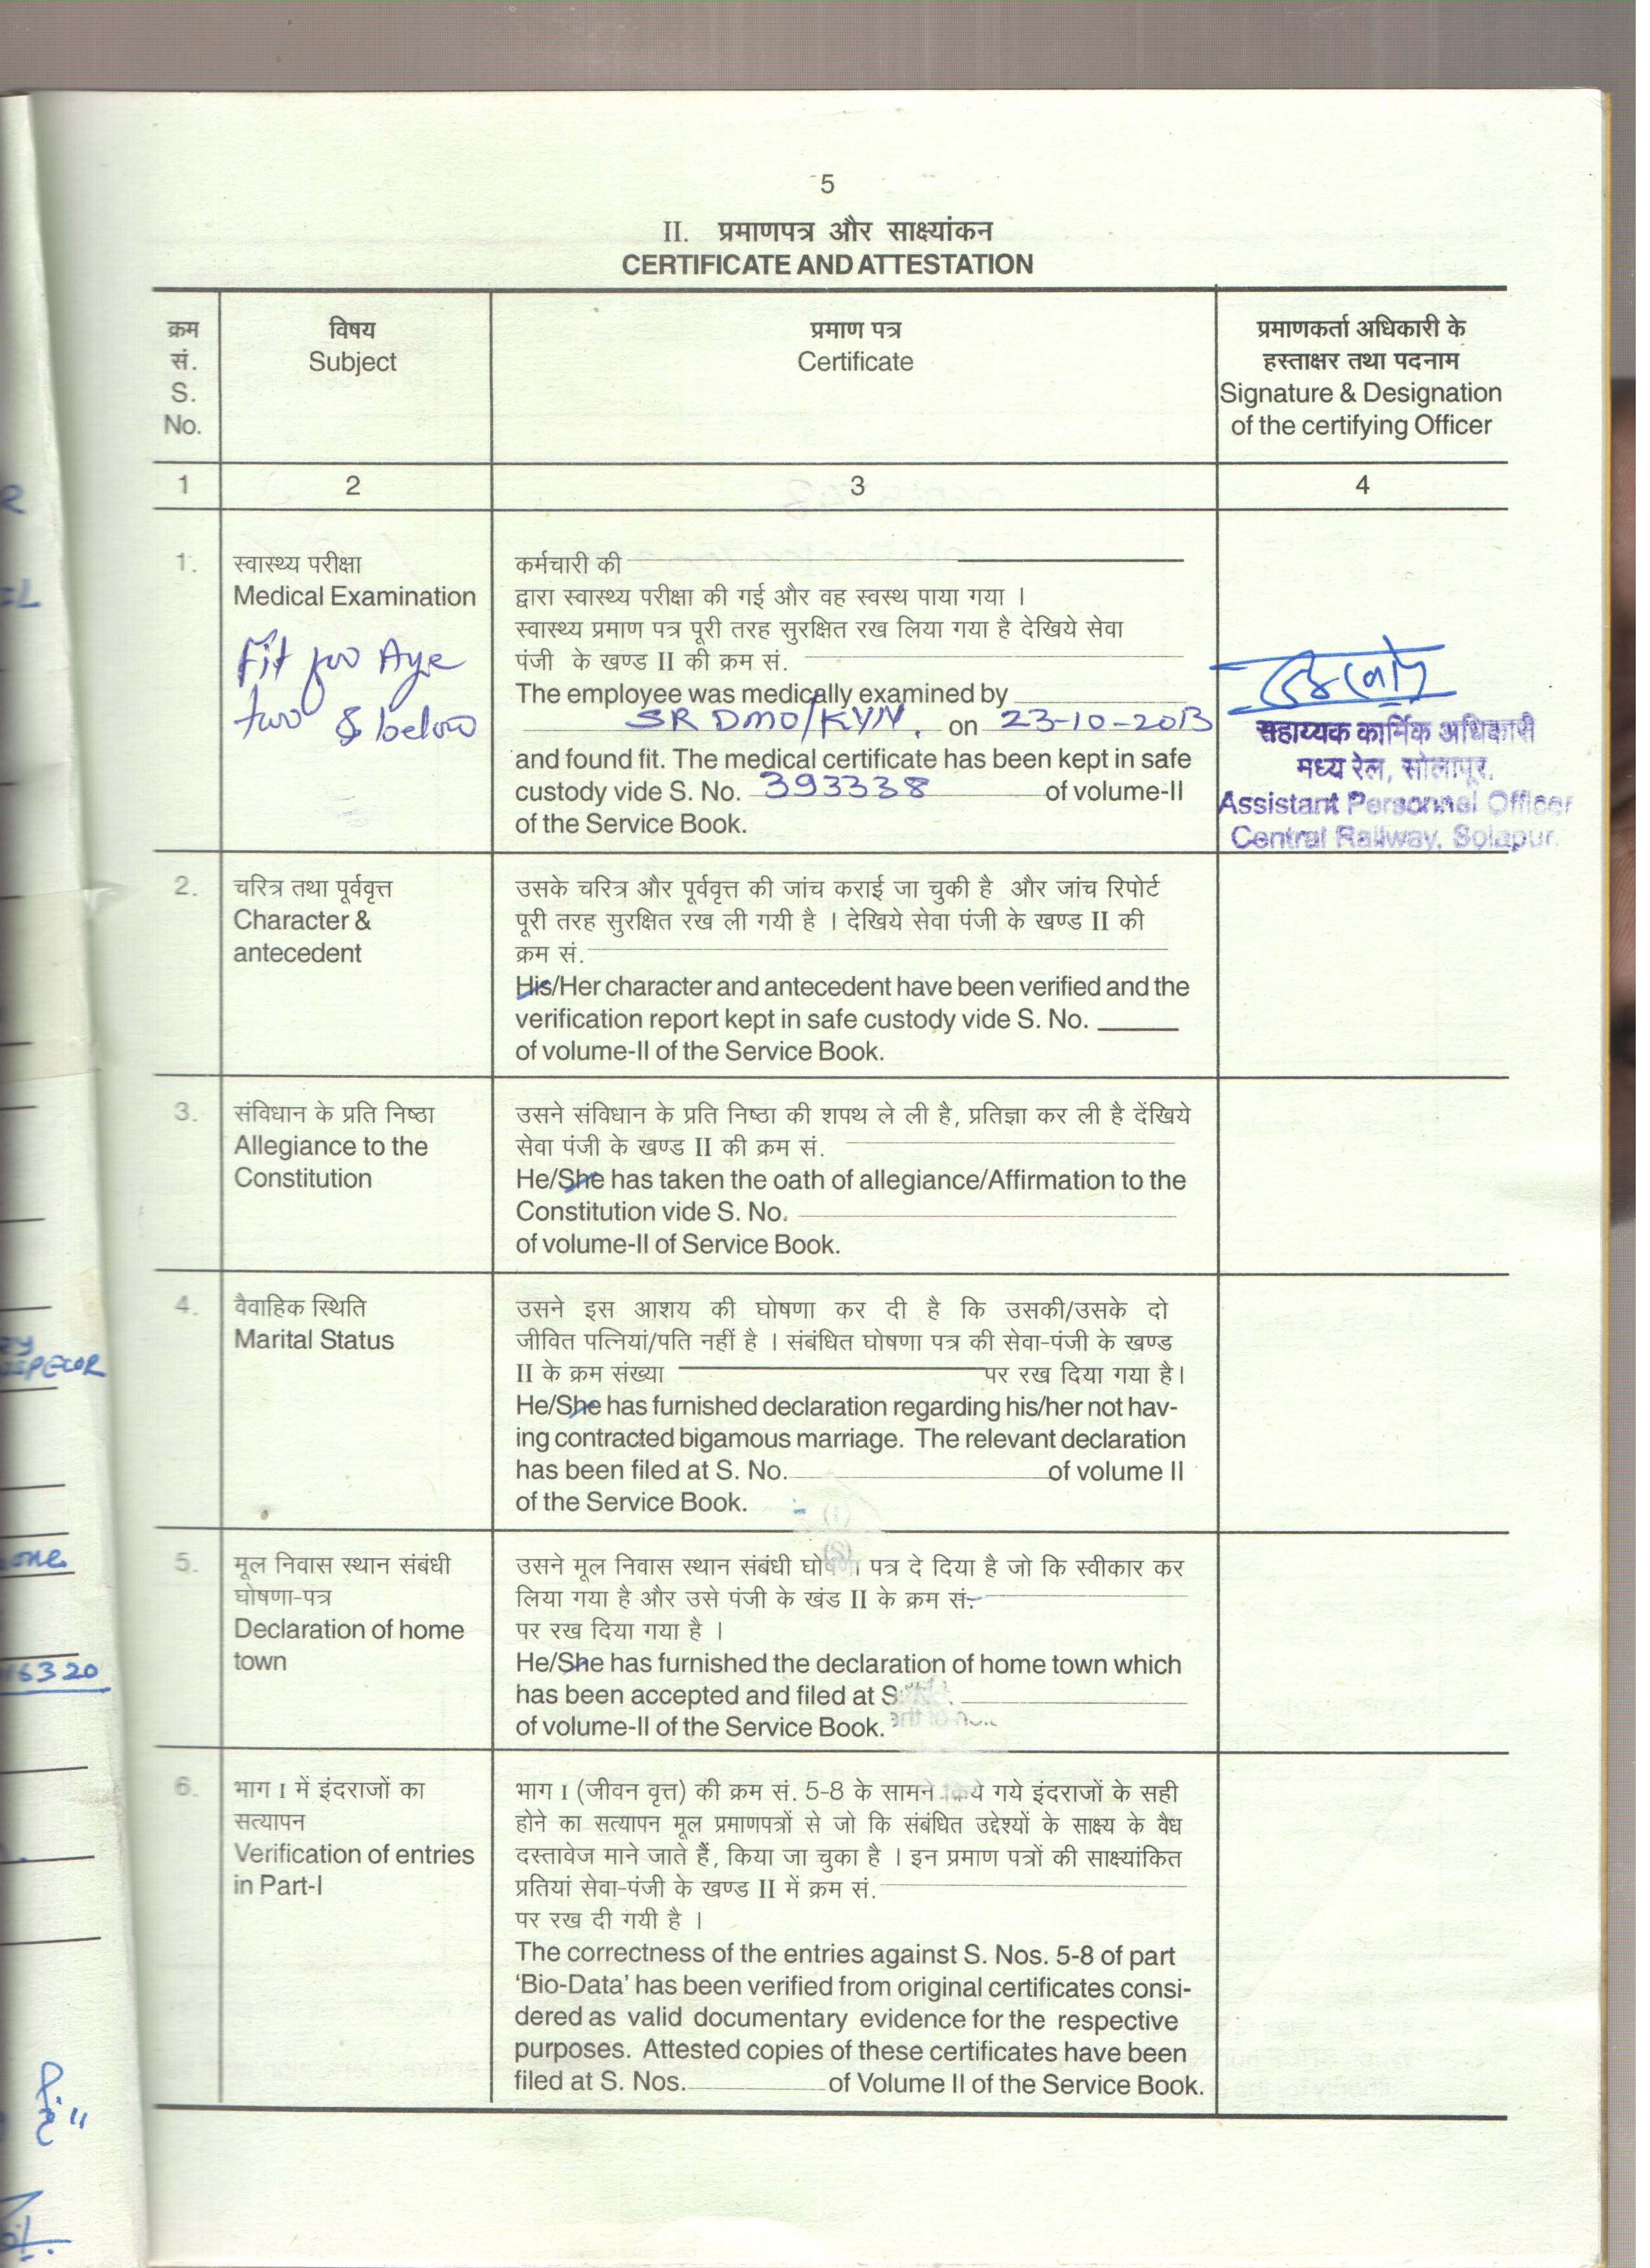 5
II. प्रमाणपत्र और साक्ष्यांकन
CERTIFICATE AND ATTESTATION
क्रम
सं.
S.
No.
विषय
Subject
प्रमाण पत्र
Certificate
प्रमाणकर्ता अधिकारी के
हस्ताक्षर तथा पदनाम
Signature & Designation
of the certifying Officer
1 2 3 4
1. स्वास्थ्य परीक्षा
Medical Examination
Fit for Aye
two & below
कर्मचारी की
द्वारा स्वास्थ्य परीक्षा की गई और वह स्वस्थ पाया गया ।
स्वास्थ्य प्रमाण पत्र पूरी तरह सुरक्षित रख लिया गया है देखिये सेवा
पंजी के खण्ड II की क्रम सं.
The employee was medically examined by
SR DMO/KYN. on 23-10-2013
and found fit. The medical certificate has been kept in safe
custody vide S. No. 393338 of volume-II
of the Service Book.
सहाय्यक कार्मिक अधिकारी
मध्य रेल, सोलापूर.
Assistant Personnel Officer
Central Railway, Solapur.
2. चरित्र तथा पूर्ववृत्त
Character &
antecedent
उसके चरित्र और पूर्ववृत्त की जांच कराई जा चुकी है और जांच रिपोर्ट
पूरी तरह सुरक्षित रख ली गयी है । देखिये सेवा पंजी के खण्ड II की
क्रम सं.
His/Her character and antecedent have been verified and the
verification report kept in safe custody vide S. No.
of volume-II of the Service Book.
3. संविधान के प्रति निष्ठा
Allegiance to the
Constitution
उसने संविधान के प्रति निष्ठा की शपथ ले ली है, प्रतिज्ञा कर ली है देंखिये
सेवा पंजी के खण्ड II की क्रम सं.
He/She has taken the oath of allegiance/Affirmation to the
Constitution vide S. No.
of volume-II of Service Book.
4. वैवाहिक स्थिति
Marital Status
उसने इस आशय की घोषणा कर दी है कि उसकी/उसके दो
जीवित पत्नियां/पति नहीं है । संबंधित घोषणा पत्र की सेवा-पंजी के खण्ड
II के क्रम संख्या पर रख दिया गया है।
He/She has furnished declaration regarding his/her not hav-
ing contracted bigamous marriage. The relevant declaration
has been filed at S. No. of volume II
of the Service Book.
5. मूल निवास स्थान संबंधी
घोषणा-पत्र
Declaration of home
town
उसने मूल निवास स्थान संबंधी घोषणा पत्र दे दिया है जो कि स्वीकार कर
लिया गया है और उसे पंजी के खंड II के क्रम सं.
पर रख दिया गया है ।
He/She has furnished the declaration of home town which
has been accepted and filed at S
of volume-II of the Service Book.
6. भाग I में इंदराजों का
सत्यापन
Verification of entries
in Part-I
भाग I (जीवन वृत्त) की क्रम सं. 5-8 के सामने किये गये इंदराजों के सही
होने का सत्यापन मूल प्रमाणपत्रों से जो कि संबंधित उद्देश्यों के साक्ष्य के वैध
दस्तावेज माने जाते हैं, किया जा चुका है । इन प्रमाण पत्रों की साक्ष्यांकित
प्रतियां सेवा-पंजी के खण्ड II में क्रम सं.
पर रख दी गयी है ।
The correctness of the entries against S. Nos. 5-8 of part
‘Bio-Data’ has been verified from original certificates consi-
dered as valid documentary evidence for the respective
purposes. Attested copies of these certificates have been
filed at S. Nos. of Volume II of the Service Book.